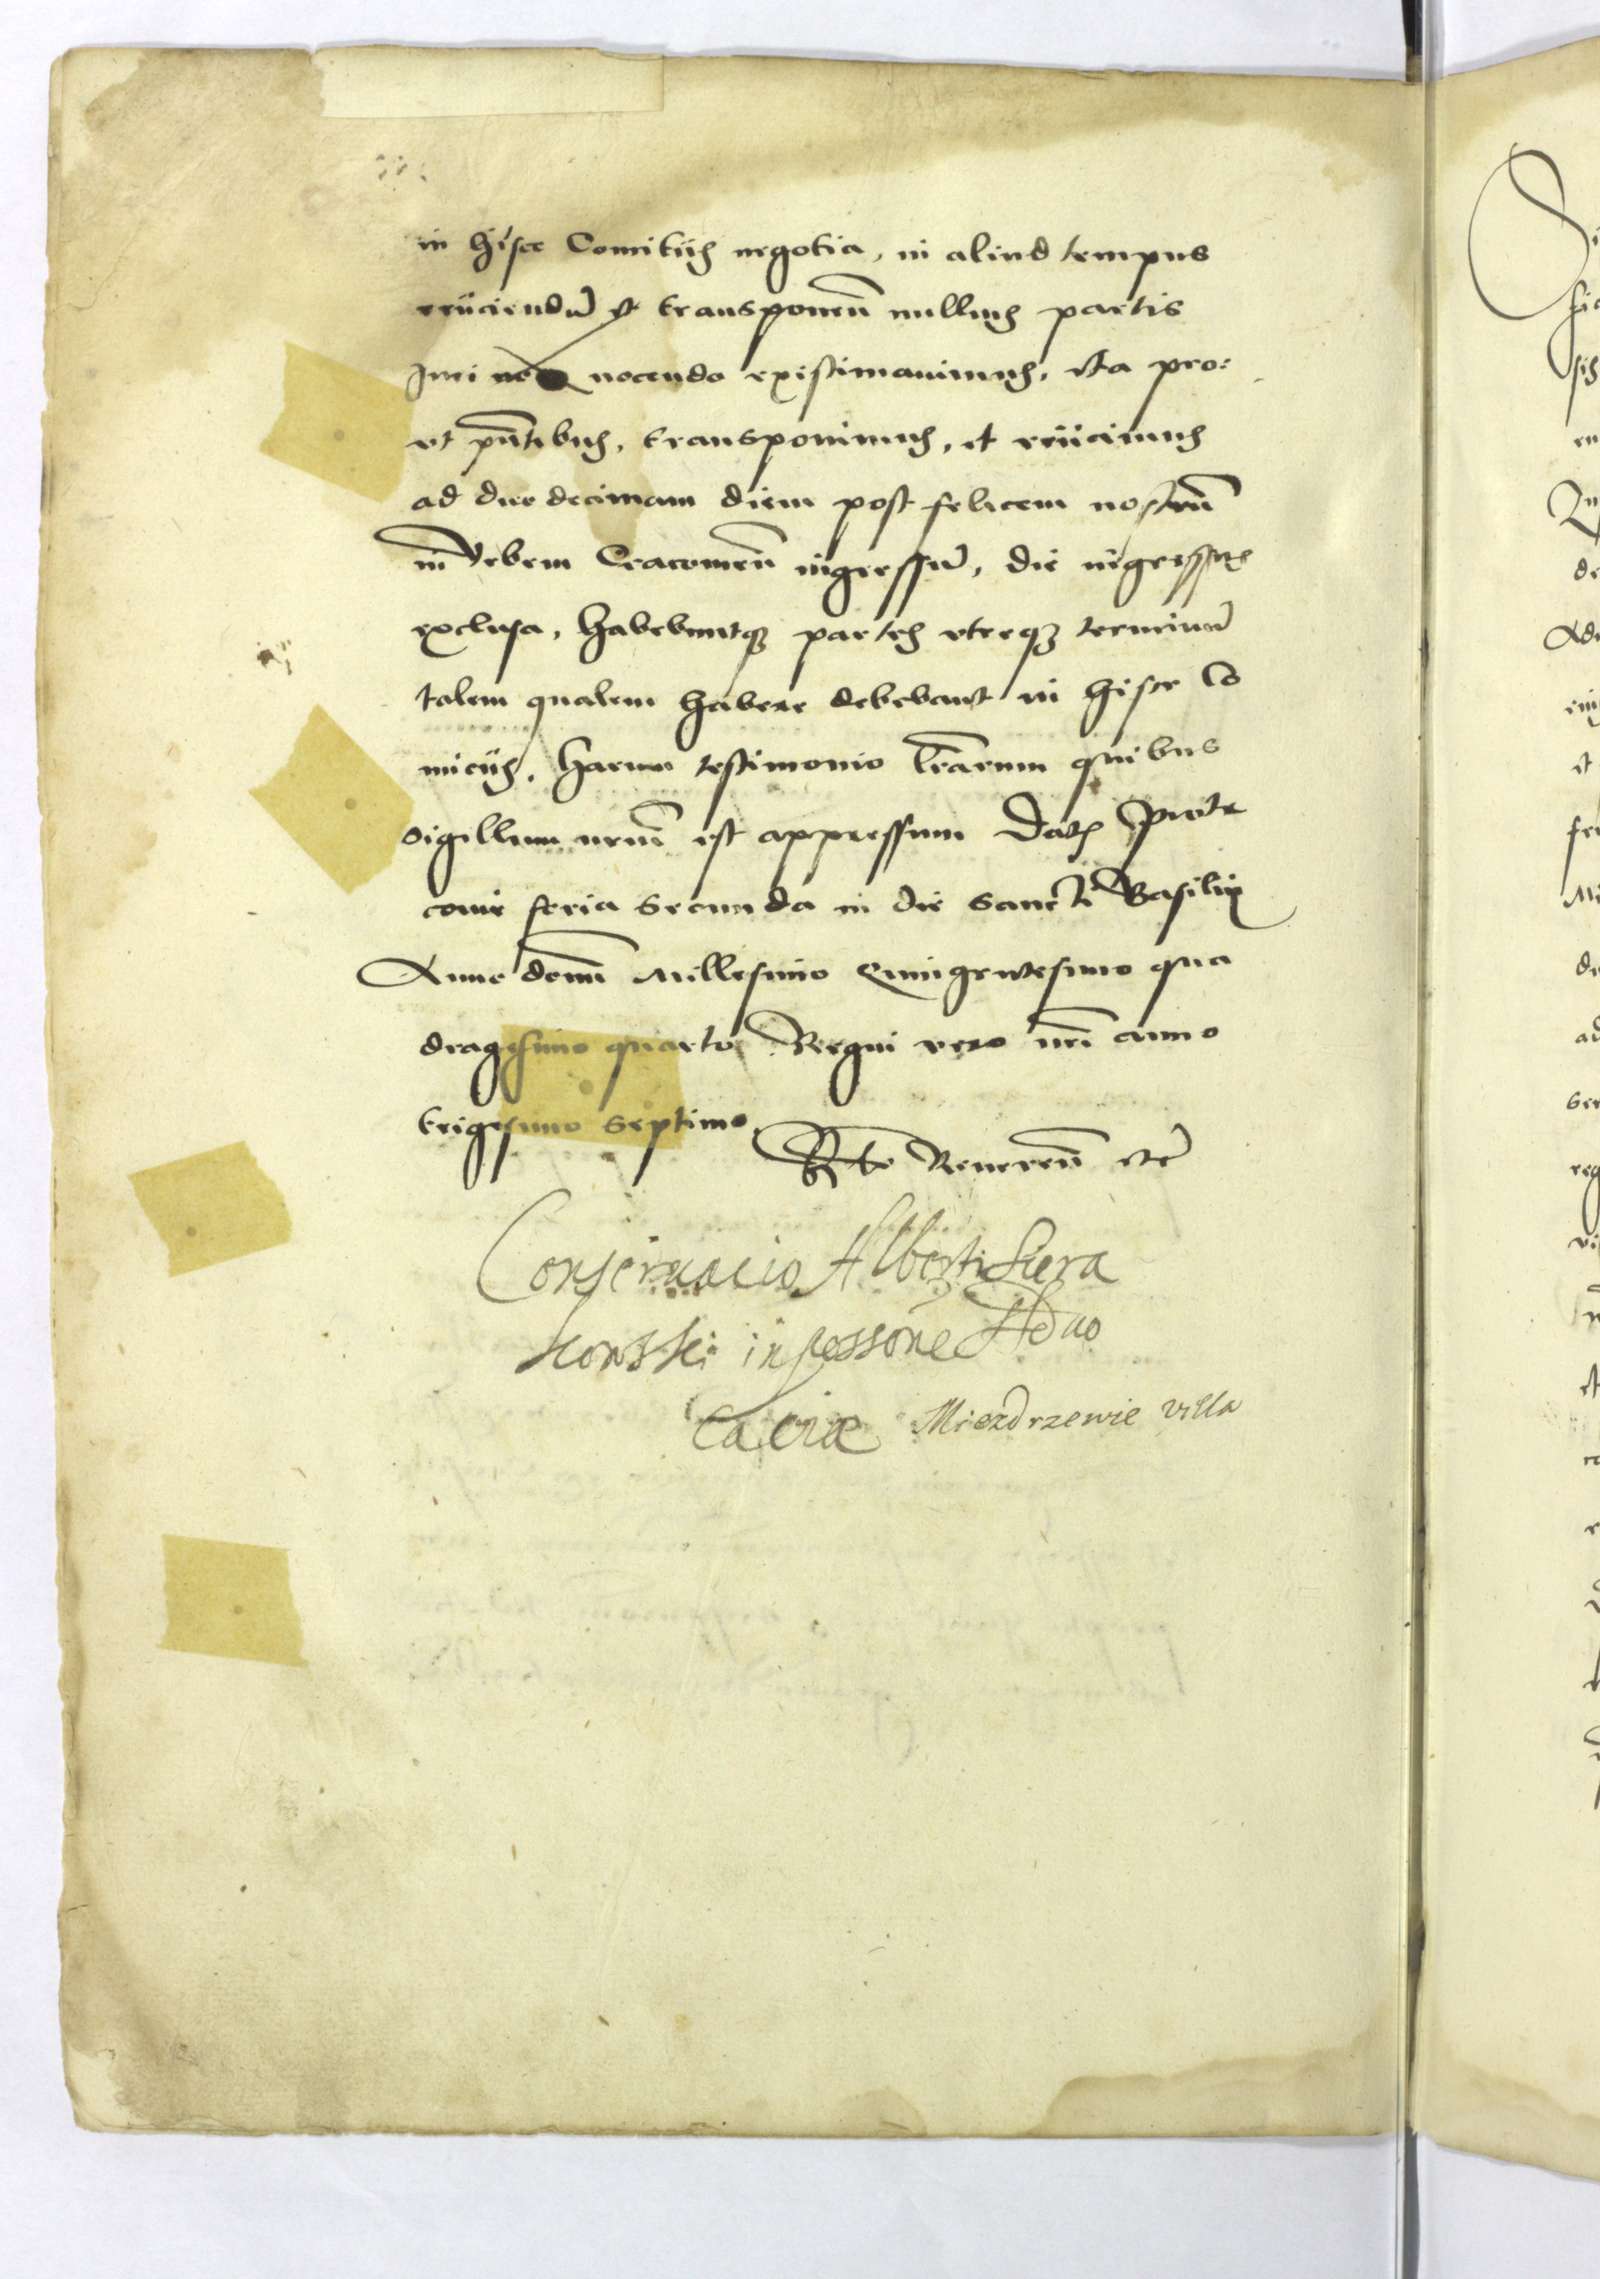 in hisce Comitiis negotia, in aliud tempus
reiiciendũ et transponeñ nullius partis
Juri nocendo existimavimus, Ita pro:
ut pñtibus, transponimus, et reiicimus
ad duodecimam diem post felicem nostrũ
in Urbem Cracovieñ ingressũ, die ingressus
exclusa, habebuntqȝ partes utreqȝ terminũ
talem qualem habere debebant in hisce Co
miciis, harum testimonio lrãrum quibus
Sigillum nrũm est appressum Datȝ Piotr
covie feria secunda in die Sancti Basilij
Anno domi Millesimo Quingentesimo qua
dragesimo quarto Regni vero nri anno
trigesimo septimo.
Rta Reverenñ etc
Conservacio Alberti Siera
konski in possione Advo
Caciæ Miezdrzewie villa